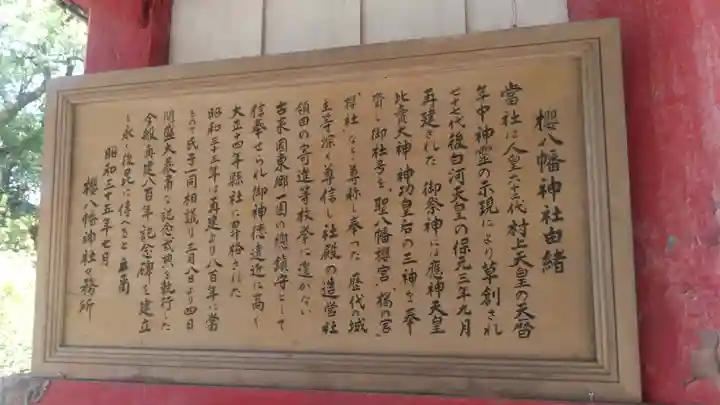 櫻八幡神社由緒
當社は人皇六十二代村上天皇の天暦
年中神霊の示現により草創され
七十七代後白河天皇の保元三年九月
再建された 御祭神は應神天皇
比賣大神 神功皇后の三神を奉
齋し御社号を 聖八幡櫻宮 橋の宮
櫻社 などと尊称し奉った 歴代の城
主等深く尊信し 社殿の造営社
領田の寄進等枚挙に遑がない
古来国東郷一圓の總鎮守として
信奉せられ御神徳遠近に高く
大正十四年縣社に昇格された
昭和三十三年は再建より八百年に當
るので氏子一同相謀り三月八日より四日
間盛大恭肅に記念式典を執行した
今般再建八百年記念碑を建立し
永く後昆に傳へると
昭和三十五年七月
櫻八幡神社々務所